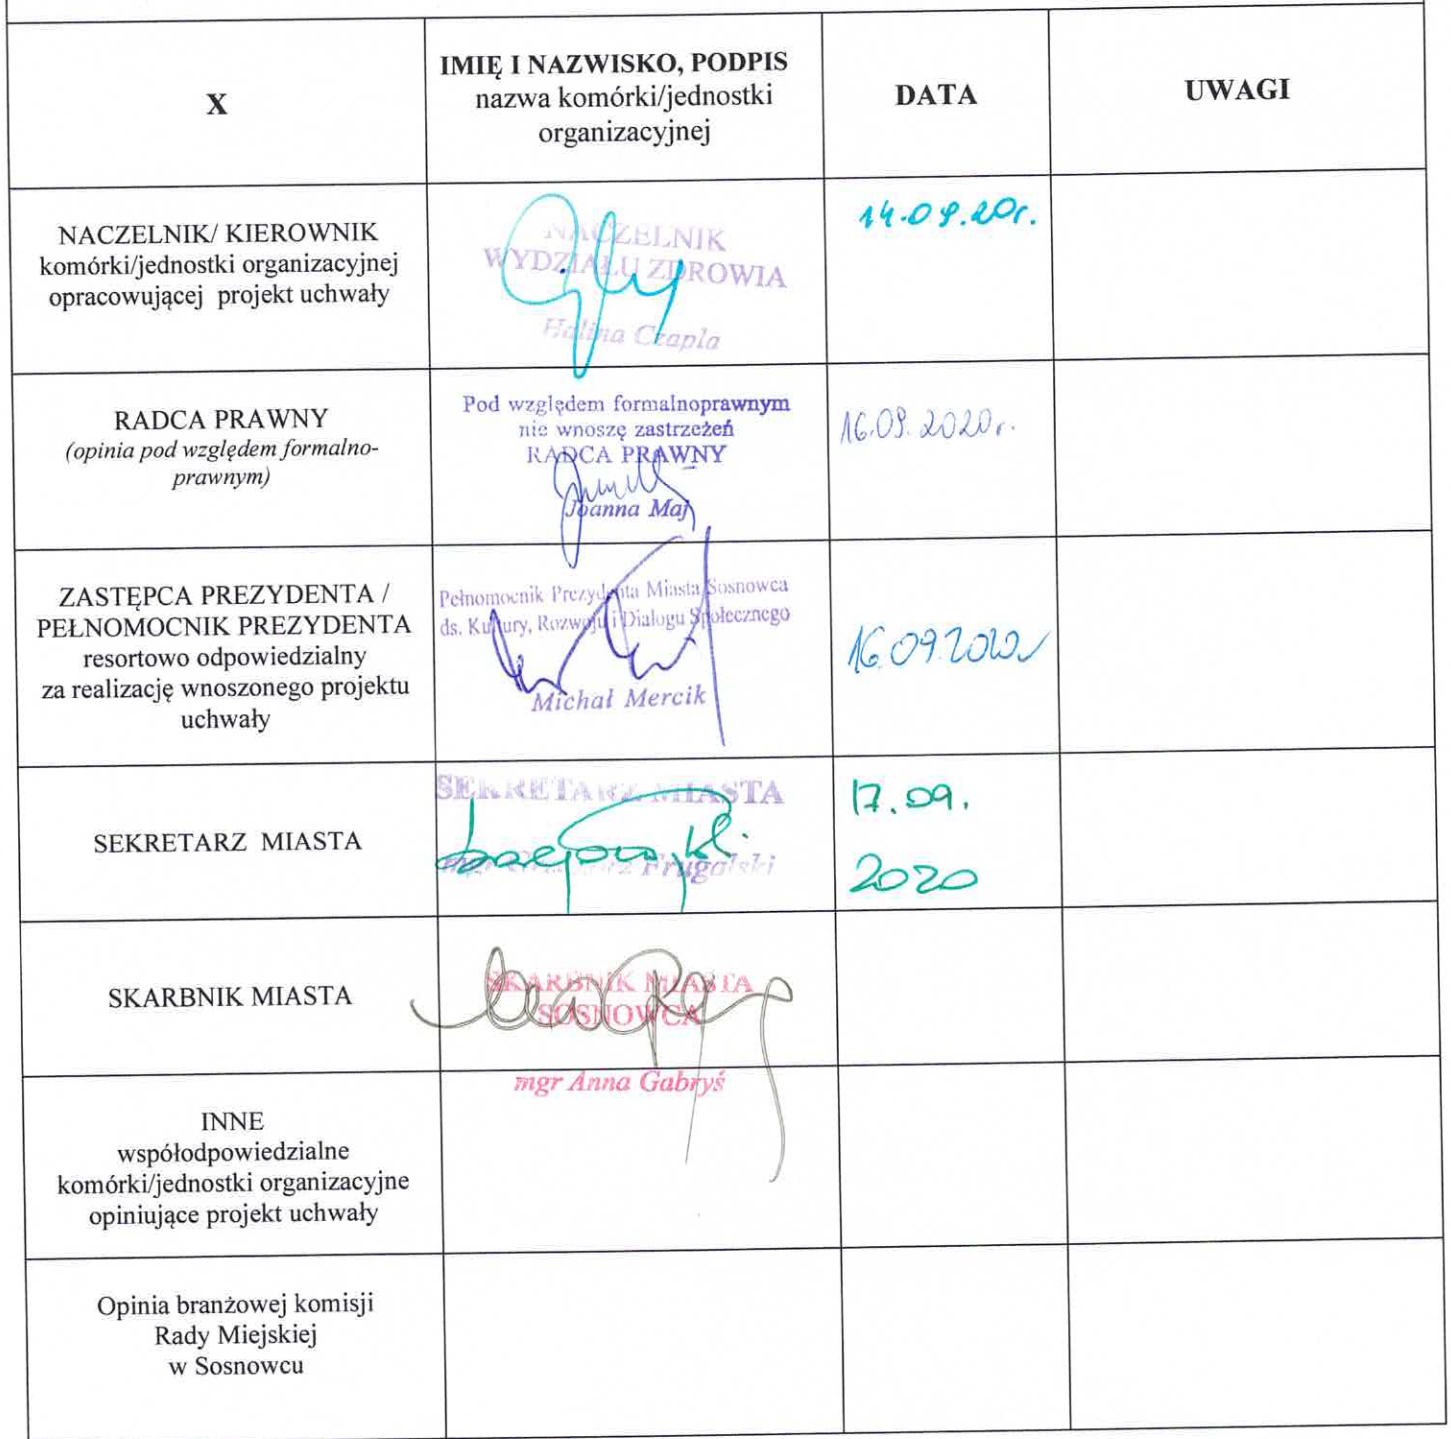 X
IMIĘ I NAZWISKO, PODPIS
nazwa komórki/jednostki
organizacyjnej
DATA
UWAGI
NACZELNIK/ KIEROWNIK
komórki/jednostki organizacyjnej
opracowującej projekt uchwały
NACZELNIK
WYDZIAŁU ZDROWIA
Halina Czapla
14.09.20r.
RADCA PRAWNY
(opinia pod względem formalno-
prawnym)
Pod względem formalnoprawnym
nie wnoszę zastrzeżeń
RADCA PRAWNY
Joanna Maj
16.09.2020r.
ZASTĘPCA PREZYDENTA /
PEŁNOMOCNIK PREZYDENTA
resortowo odpowiedzialny
za realizację wnoszonego projektu
uchwały
Pełnomocnik Prezydenta Miasta Sosnowca
ds. Kultury, Rozwoju i Dialogu Społecznego
Michał Mercik
16.09.2020
SEKRETARZ MIASTA
SEKRETARZ MIASTA
mgr Frugalski
17.09.
2020
SKARBNIK MIASTA
SKARBNIK MIASTA
SOSNOWCA
mgr Anna Gabryś
INNE
współodpowiedzialne
komórki/jednostki organizacyjne
opiniujące projekt uchwały
Opinia branżowej komisji
Rady Miejskiej
w Sosnowcu